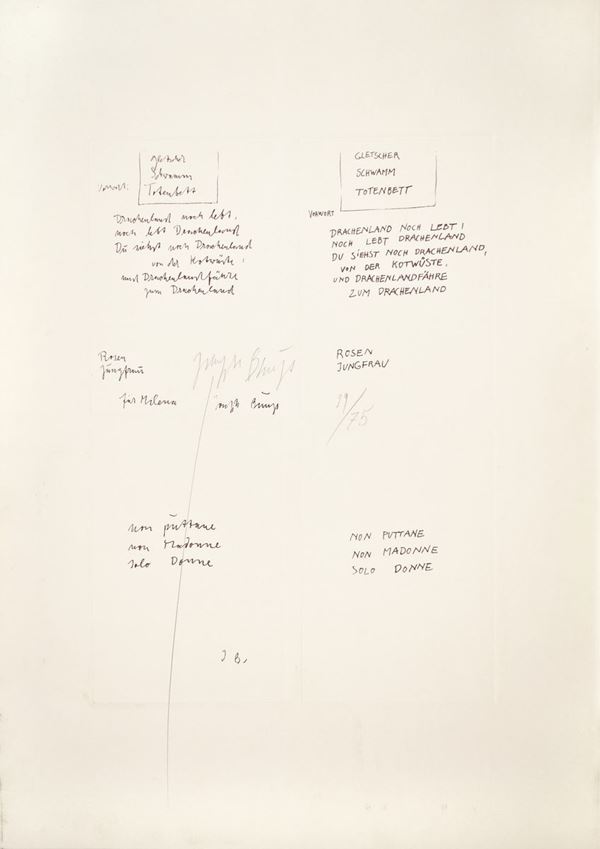 Vorwort:
Gletscher
Schwamm
Totenbett
Drachenland noch lebt,
noch lebt Drachenland
Du siehst noch Drachenland
von der Kotwüste,
und Drachenlandfähre
zum Drachenland
Rosen
Jungfrau
Joseph Beuys
für Milena
Joseph Beuys
non puttane
non Madonne
solo Donne
J B.
GLETSCHER
SCHWAMM
TOTENBETT
VORWORT
DRACHENLAND NOCH LEBT!
NOCH LEBT DRACHENLAND
DU SIEHST NOCH DRACHENLAND,
VON DER KOTWÜSTE,
UND DRACHENLANDFÄHRE
ZUM DRACHENLAND
ROSEN
JUNGFRAU
39/75
NON PUTTANE
NON MADONNE
SOLO DONNE